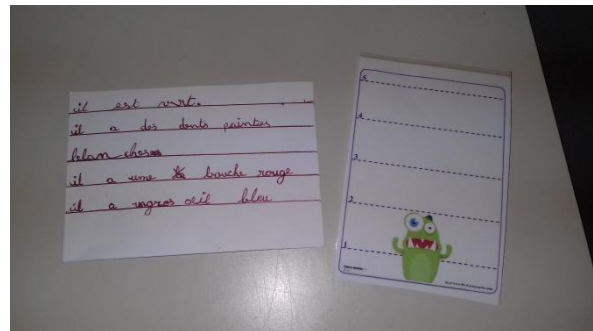 il est vert.
il a des dents pointus
blan ches
il a une bouche rouge
il a ungros œil bleu
5.
4.
3.
2.
1.